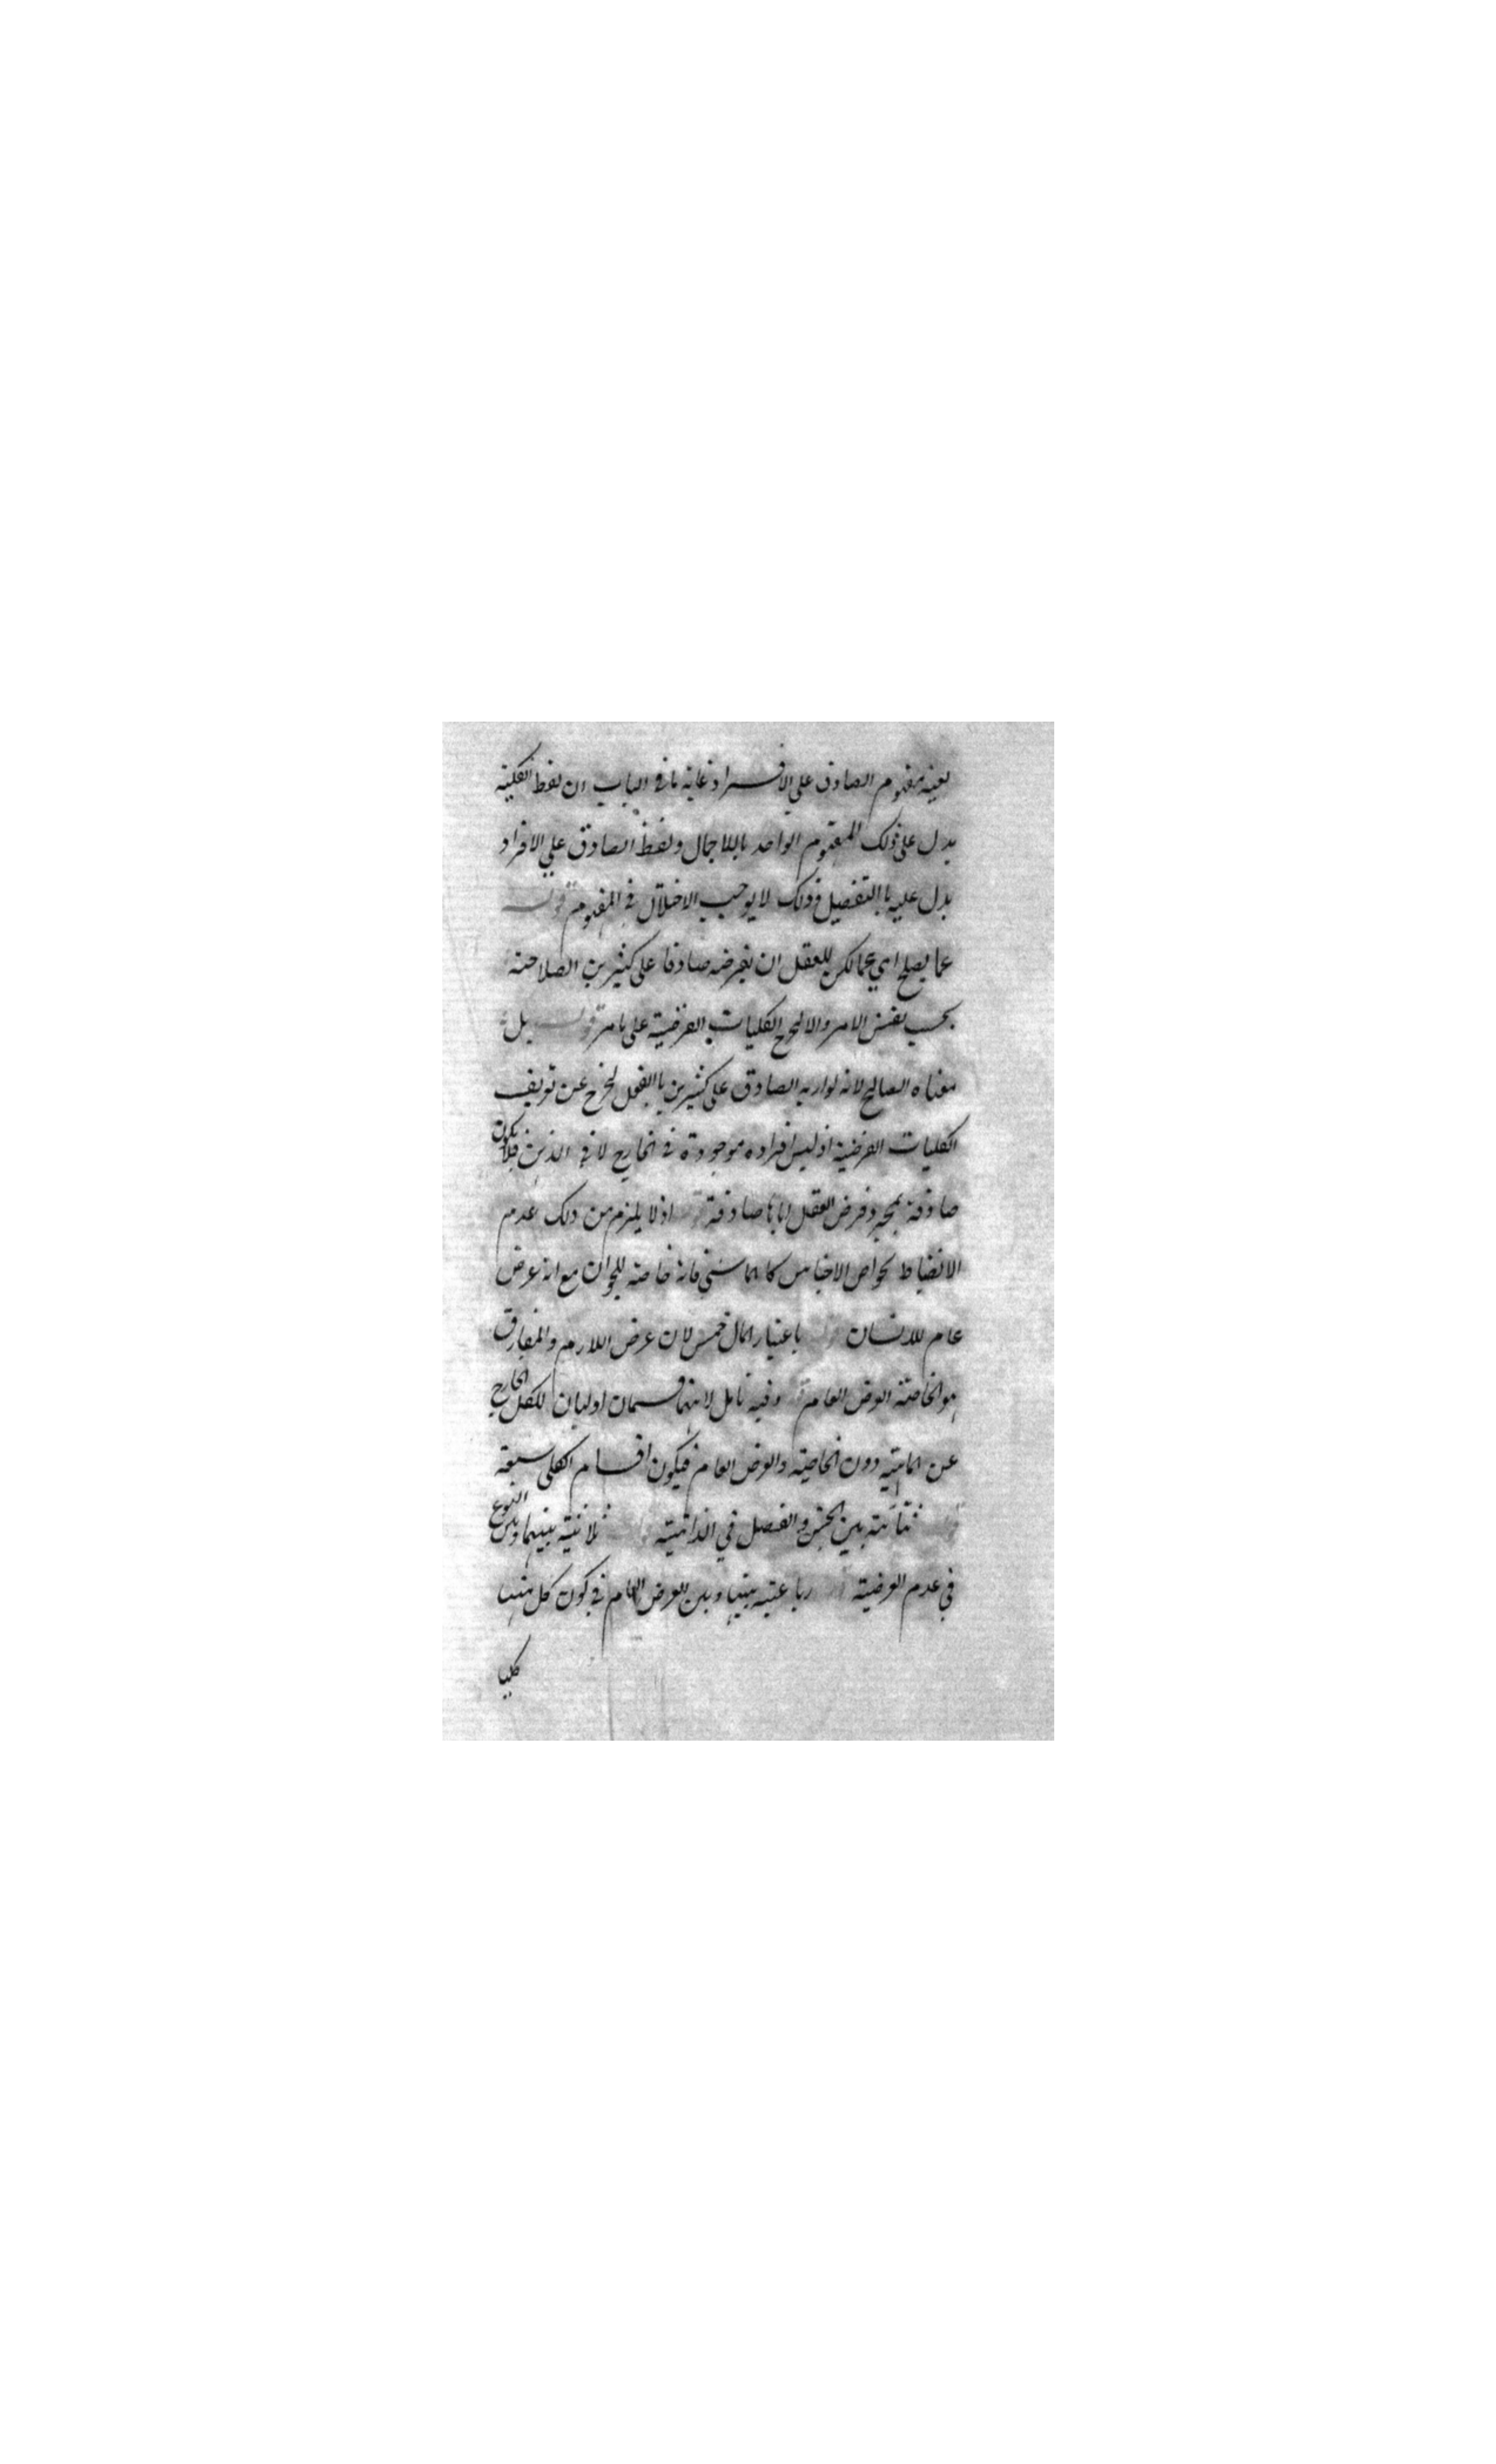 بعينه مفهوم الصادق على الافراد غاية ما في الباب ان لفظ الكلية
يدل على ذلك المفهوم الواحد باالاجمال ولفظ الصادق على الافراد
يدل عليه باالتفصيل وذلك لا يوجب الاختلاف في المفهوم قوله
عما يصلح اي عما يمكن للعقل ان يفرضه صادقا على كثيرين الصلاحية
بحسب نفس الامر والا لخرج الكليات الفرضية على ما مر قوله بل
معناه الصالح لانه لو اريد الصادق على كثيرين باالفعل لخرج عن تعريف
الكليات الفرضية اذ ليس افراده موجودة في الخارج لا في الذهن فلا يكون
صادقة بمجرد فرض العقل انها صادقة اذ لا يلزم من ذلك عدم
الانضباط بخواص الاجناس كالماشي فانه خاصة للحيوان مع انه عرض
عام للانسان باعتبار المال خمس لان عرض اللازم والمفارق
هو الخاصة العرض العام وفيه تامل لانهما قسمان اوليان للكلي الخارج
عن الماهية دون الخاصة والعرض العام فيكون اقسام الكلي سبعة
ثنائية بين الجنس والفصل في الذاتية ثلاثية بينهما وبين النوع
في عدم العرضية رباعية بينها وبين العرض العام في كون كل منها
كليا